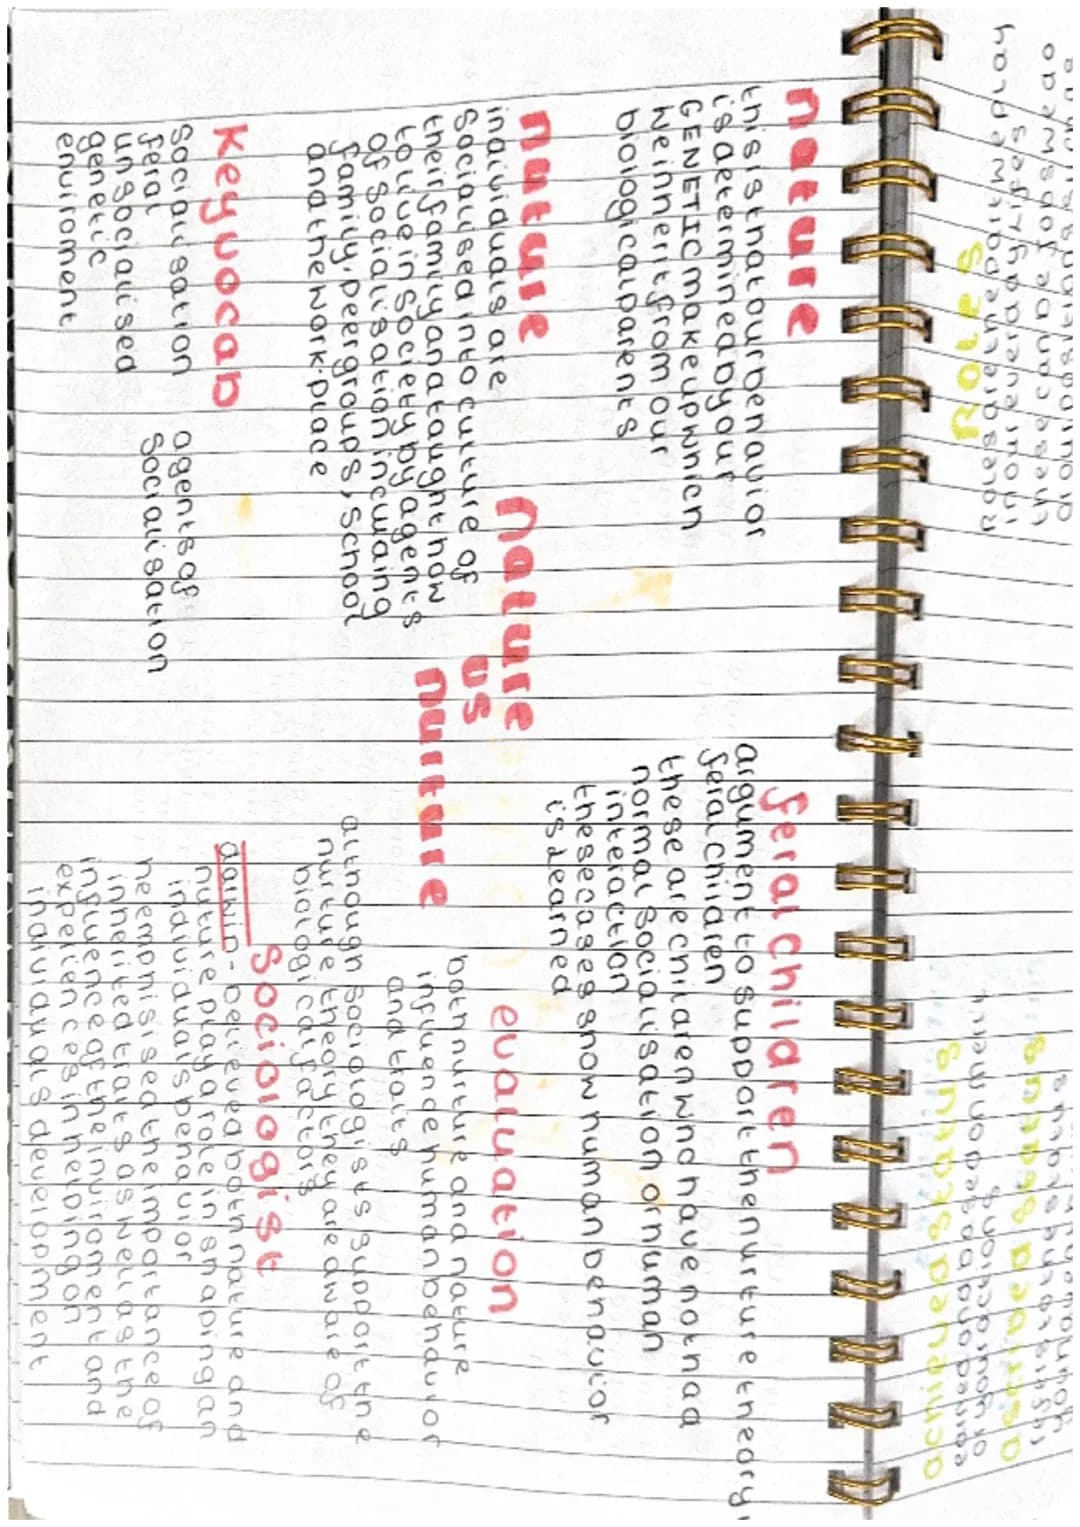 nature
this is that our behavior
is determined by your
GENETIC make up which
we inherit from our
biological parents
nuture
individuals are
socialised into culture of
their family and taught how
to live in society by agents
of socialisation incluaing
family, peer groups, school
and the work place
key vocab
socialisation
feral
unsocialised
genetic
enviroment
agents of
socialisation
nature
vs
nurture
feral children
argument to support the nurture theory
feral children
these are children who have not had
normal socialisation or human
interaction
these cases show human behavior
is learned
evaluation
both nurture and nature
influence human behavior
and traits
although sociologists support the
nurture theory they are aware of
biological factors
Sociologist
darwin - believed both nature and
nuture play a role in shabing an
individuals behavior
he emphisised the importance of
inherited traits as well as the
influence of the invironment and
experiences in helping on
individuals development
Roles
Roles are the part we play
in our everyday lifes
these can be jobs we do
achieved status
earned and based on merit
or your actions
ascribed status